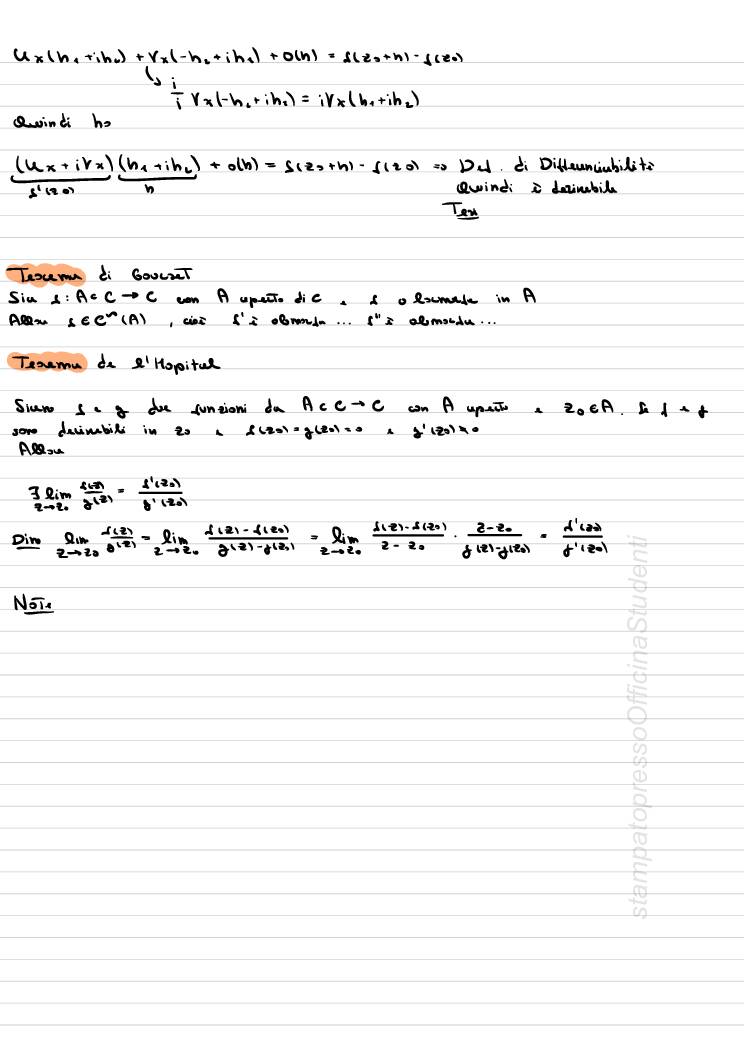 ux(h₁+ih₂) + vx(-h₂+ih₁) + o(h) = f(z₀+h) - f(z₀)
↳ i/i vx(-h₂+ih₁) = ivx(h₁+ih₂)
Quindi ho
(ux+ivx)(h₁+ih₂) + o(h) = f(z₀+h) - f(z₀) => Def. di Differenziabilità
f'(z₀) h Quindi è derivabile
Tesi
Teorema di Goursat
Sia f: A⊂C → C con A aperto di C e f olomorfa in A
Allora f∈C^∞(A), cioè f' è olomorfa ... f'' è olomorfa ...
Teorema de l'Hopital
Siano f e g due funzioni da A⊂C → C con A aperto e z₀∈A. Se f e g
sono derivabili in z₀ e f(z₀)=g(z₀)=0 e g'(z₀)≠0
Allora
∃ lim z→z₀ f(z)/g(z) = f'(z₀)/g'(z₀)
Dim lim z→z₀ f(z)/g(z) = lim z→z₀ (f(z)-f(z₀))/(g(z)-g(z₀)) = lim z→z₀ (f(z)-f(z₀))/(z-z₀) · (z-z₀)/(g(z)-g(z₀)) = f'(z₀)/g'(z₀)
Note
stampatopressoOfficinaStudenti